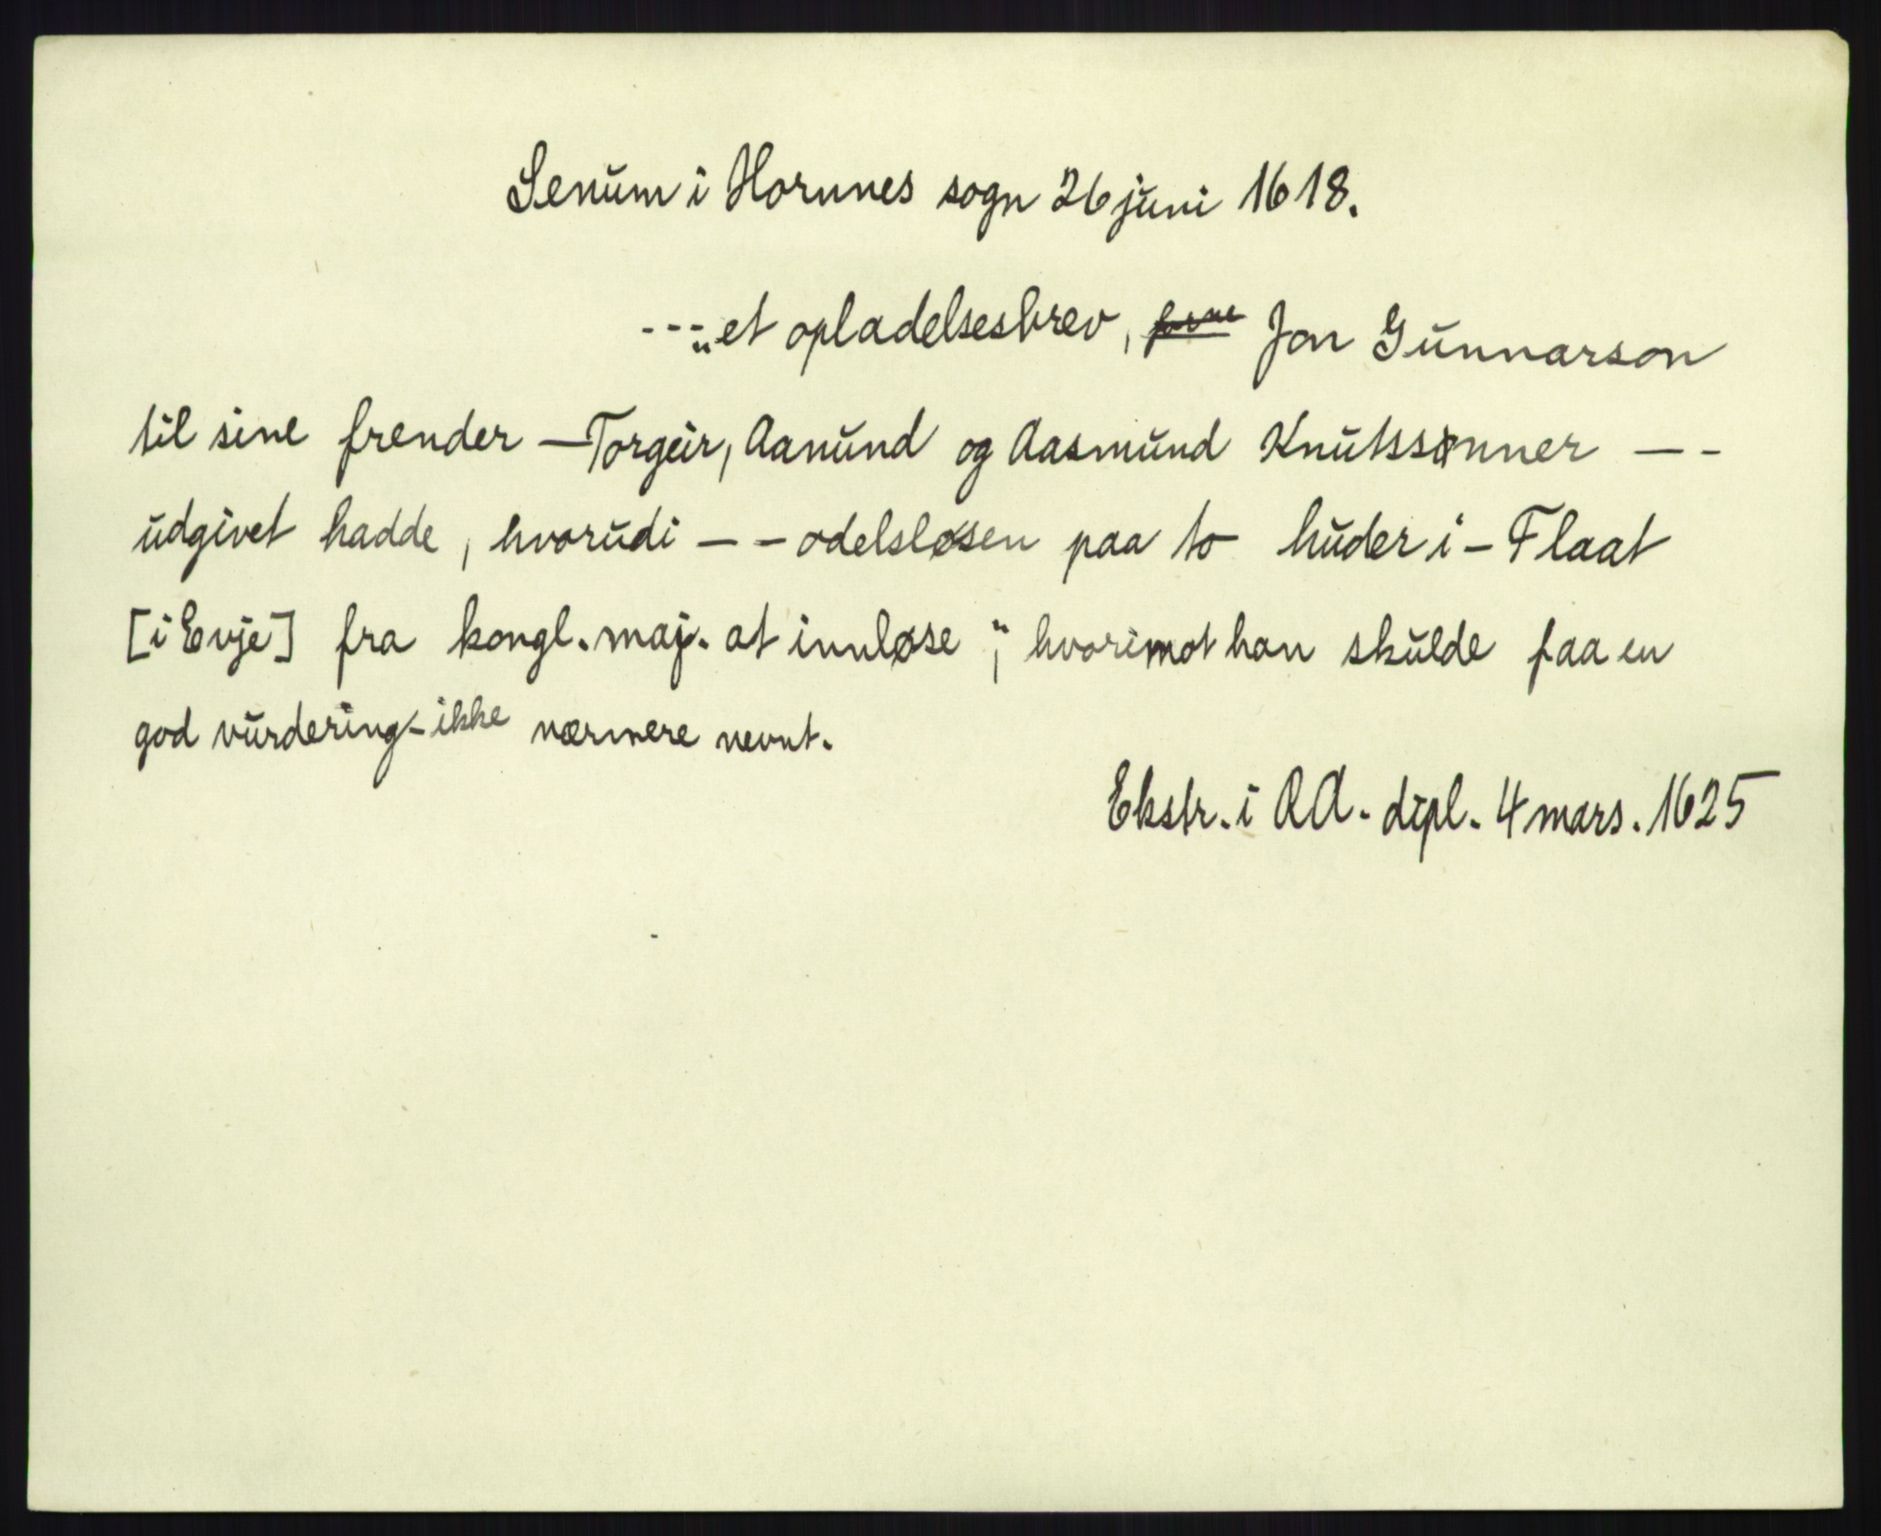 Senum i Hornnes sogn 26 juni 1618.
---„et opladelsesbrev, Jon Gunnarson
til sine frender — Torgeir, Aanund og Aasmund Knutssønner — -
udgivet hadde, hvorudi — — odelsløsen paa to huder i — Flaat
[i Evje] fra kongl. maj. at innløse“; hvorimot han skulde faa en
god vurdering – ikke nærmere nevnt.
Ekstr. i AA. dipl. 4 mars. 1625